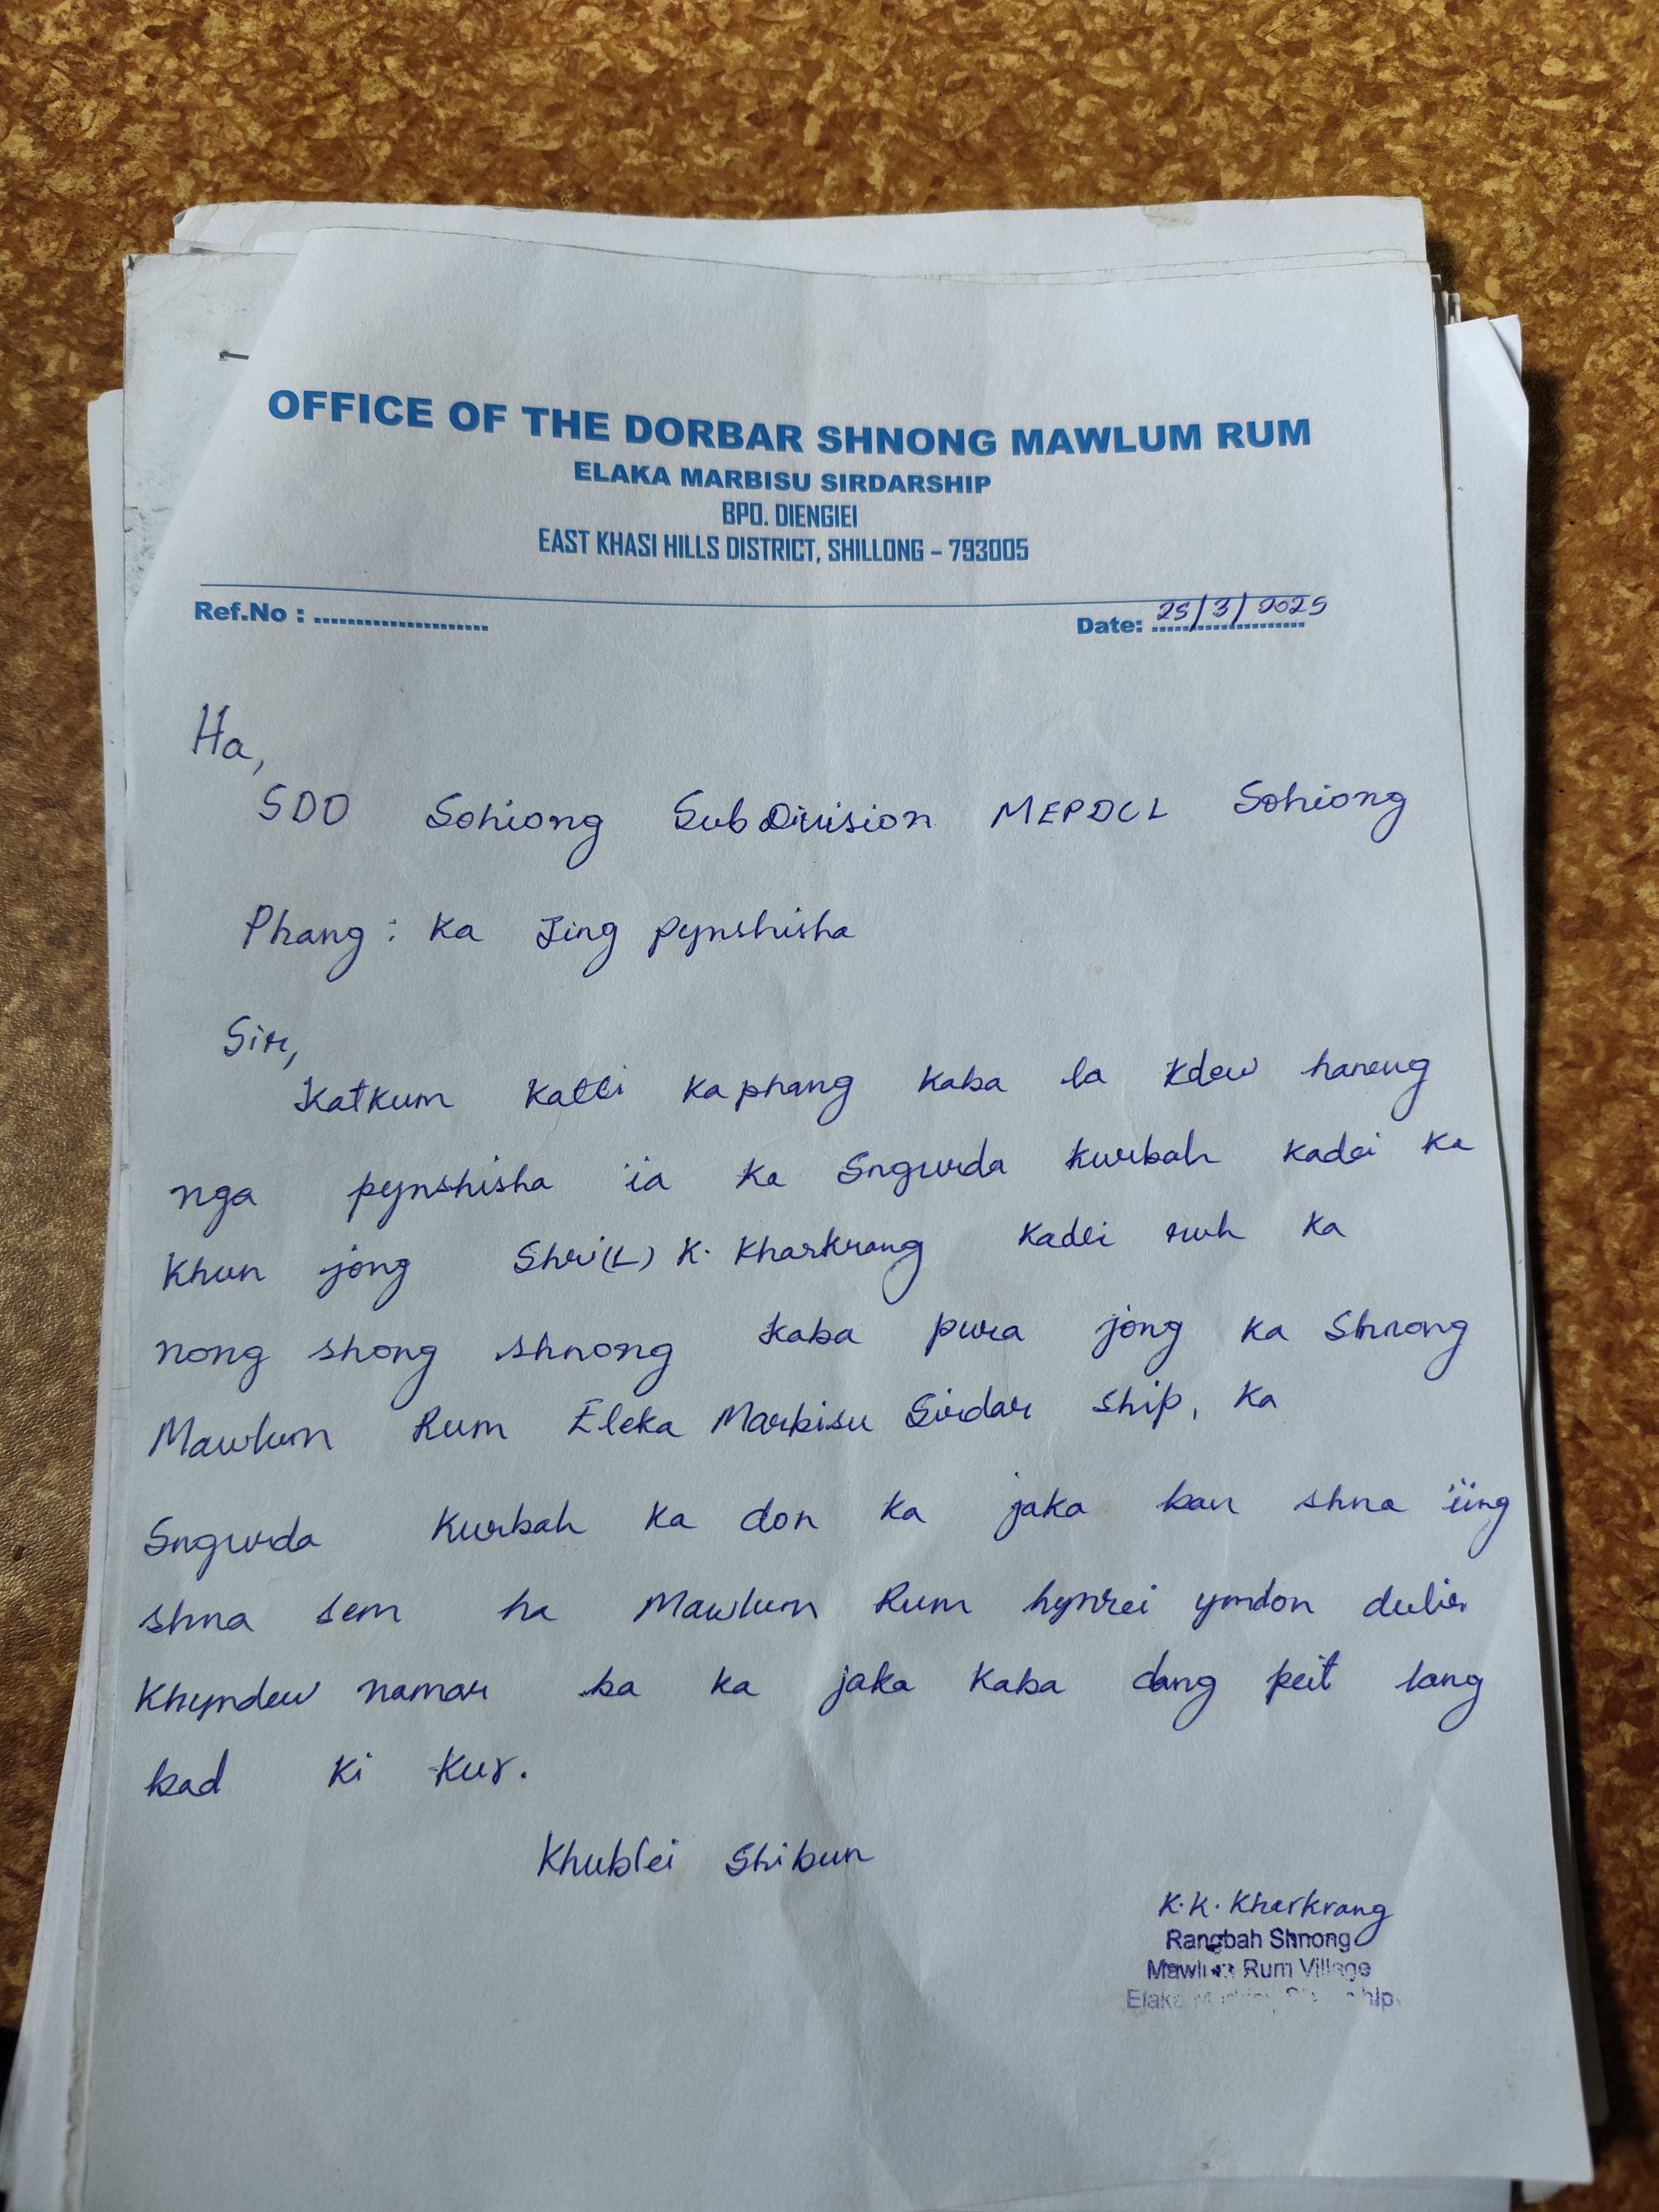 OFFICE OF THE DORBAR SHNONG MAWLUM RUM
ELAKA MARBISU SIRDARSHIP
BPO. DIENGIEI
EAST KHASI HILLS DISTRICT, SHILLONG – 793005
Ref.No : ..................... Date: 25/3/2025
Ha,
SDO Sohiong SubDivision MEPDCL Sohiong
Phang : Ka Jing pynshisha
Sir,
Katkum katei kaphang kaba la kdew haneng
nga pynshisha ia ka Sngurda kurbah kadei ka
khun jong Shri(L) K. Kharkrang kadei ruh ka
nong shong shnong kaba pura jong ka Shnong
Mawlum Rum Eleka Marbisu Sirdar ship, ka
Sngurda Kurbah ka don ka jaka ban shna ïing
shna sem ha Mawlum Rum hynrei ymdon dulir
Khyndew namar ba ka jaka kaba dang peit lang
bad ki kur.
Khublei Shibun
K.K. Kharkrang
Rangbah Shnong
Mawlum Rum Village
Elaka